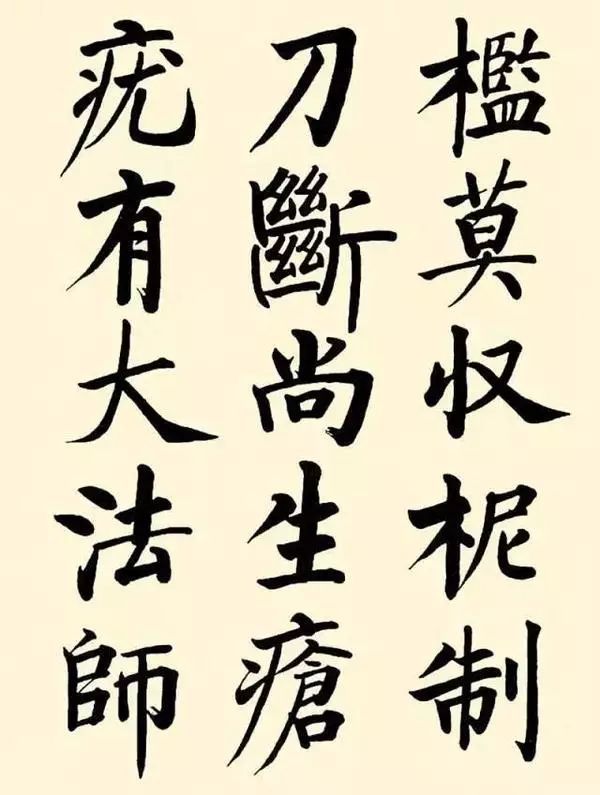 檻莫収柅制
刀斷尚生瘡
疣有大法師